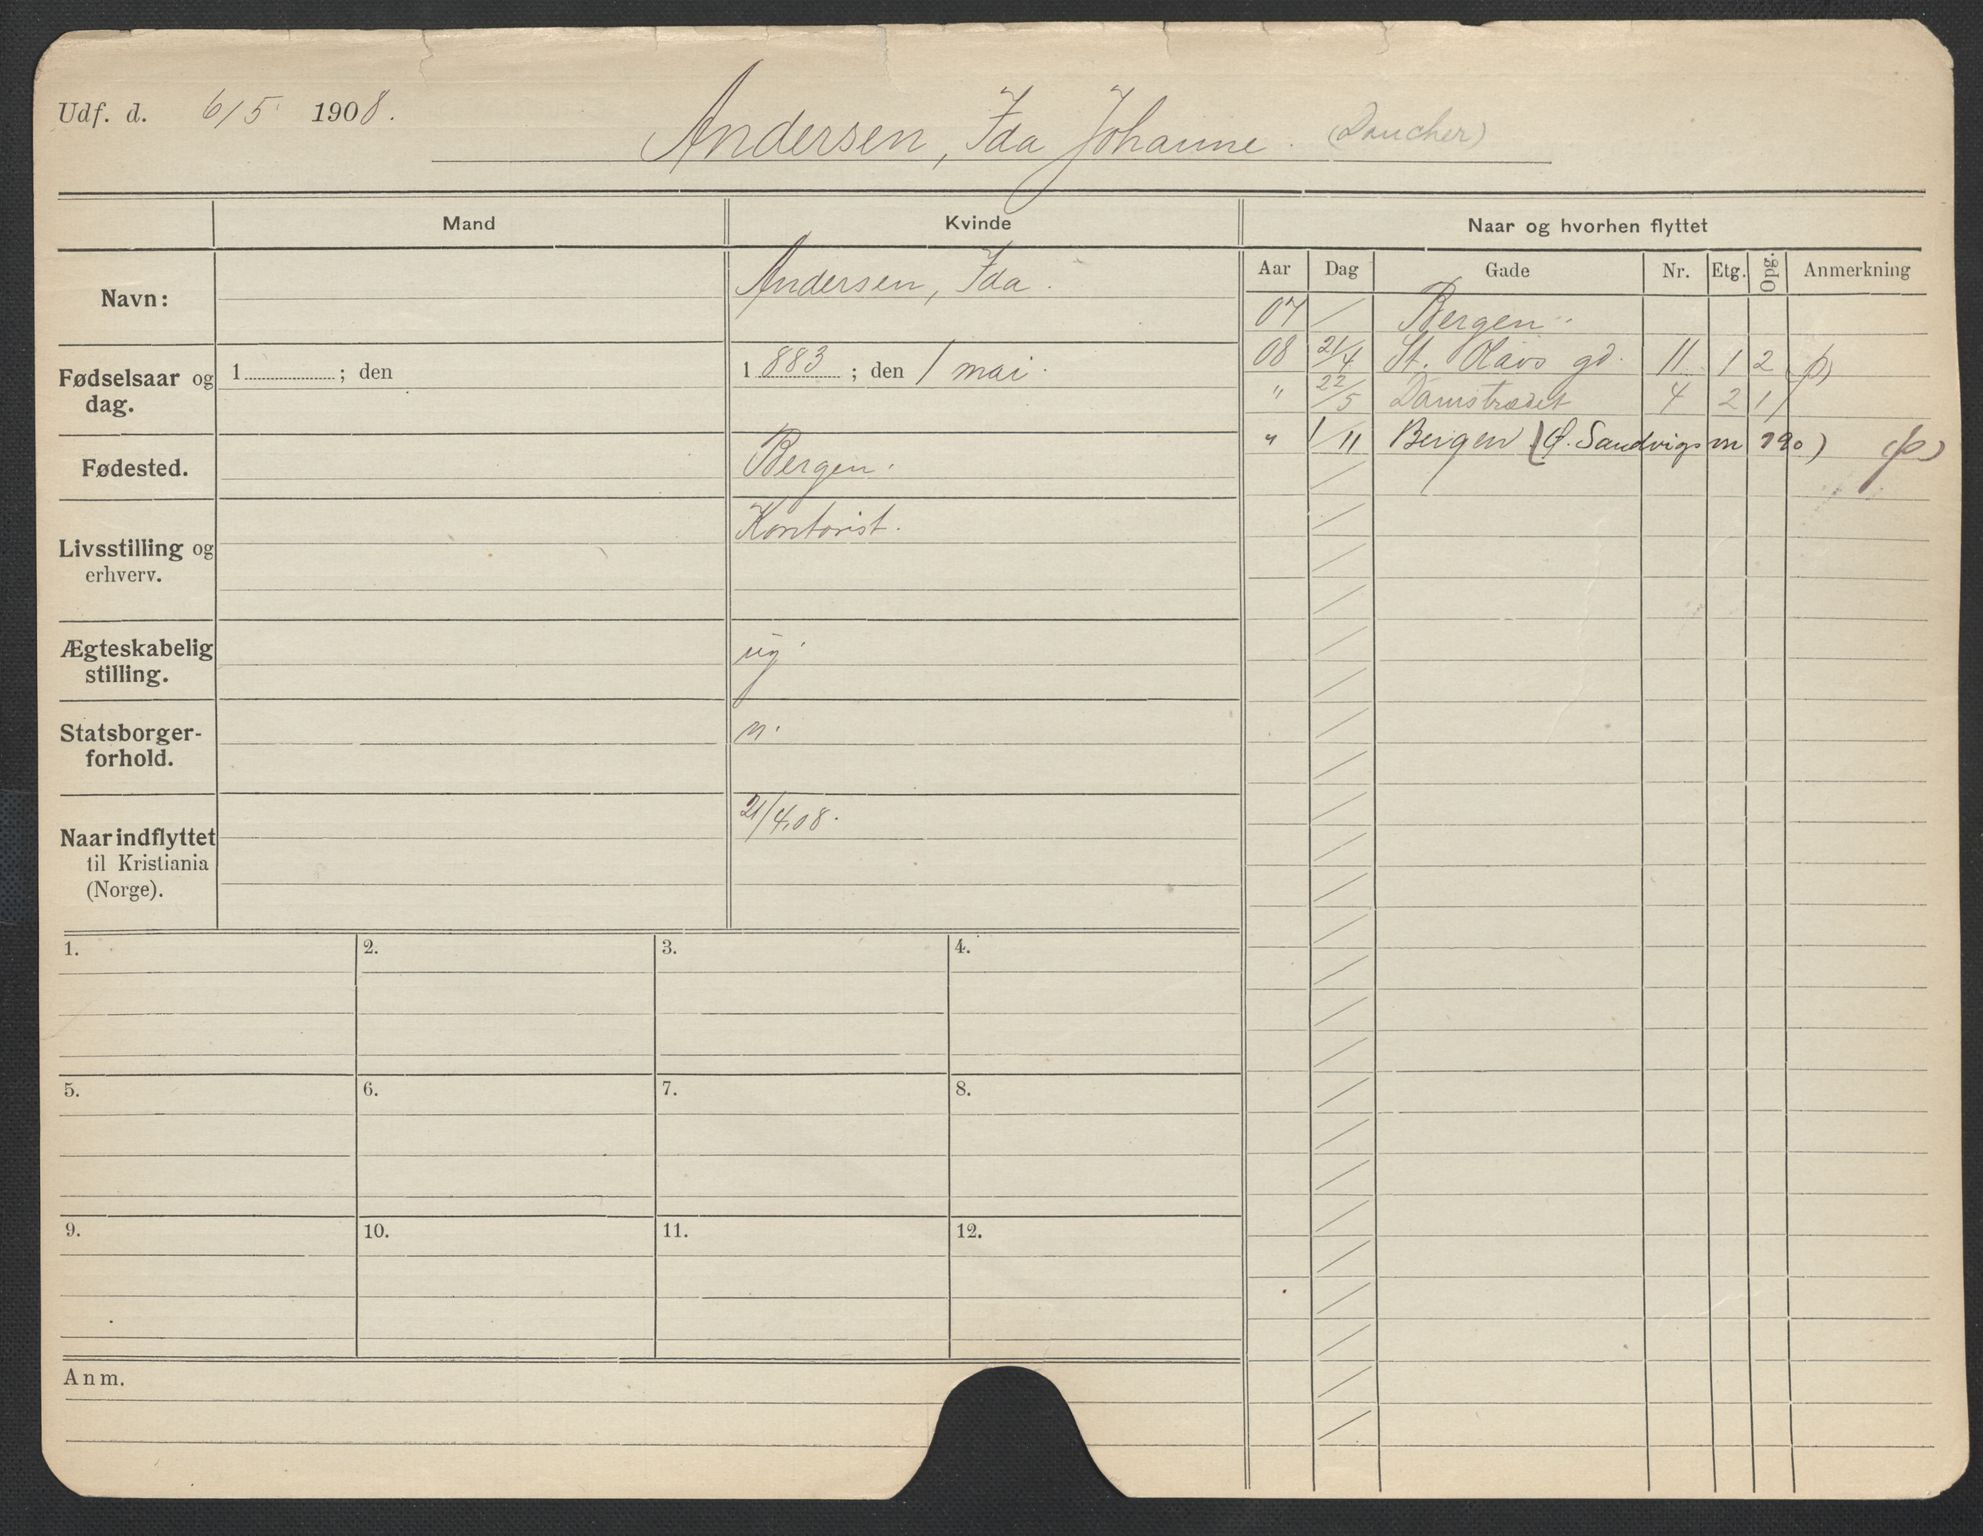 Udf. d. 6/5 1908.
Andersen, Ida Johanne. (Daucher)
Mand
Kvinde
Naar og hvorhen flyttet
Navn:
Andersen, Ida.
Aar Dag Gade Nr. Etg. Opg. Anmerkning
07 / Bergen.
08 21/4 St. Olavs gd. 11 1 2 (p)
" 22/5 Damstrædet 4 2 1
" 1/11 Bergen (Ø. Sandvigs m 190) (p)
Fødselsaar og dag.
1 ; den
1 883 ; den 1 mai.
Fødested.
Bergen.
Livsstilling og erhverv.
Kontorist.
Ægteskabelig stilling.
ug.
Statsborger-
forhold.
n.
Naar indflyttet
til Kristiania
(Norge).
21/4.08.
1. 2. 3. 4.
5. 6. 7. 8.
9. 10. 11. 12.
Anm.